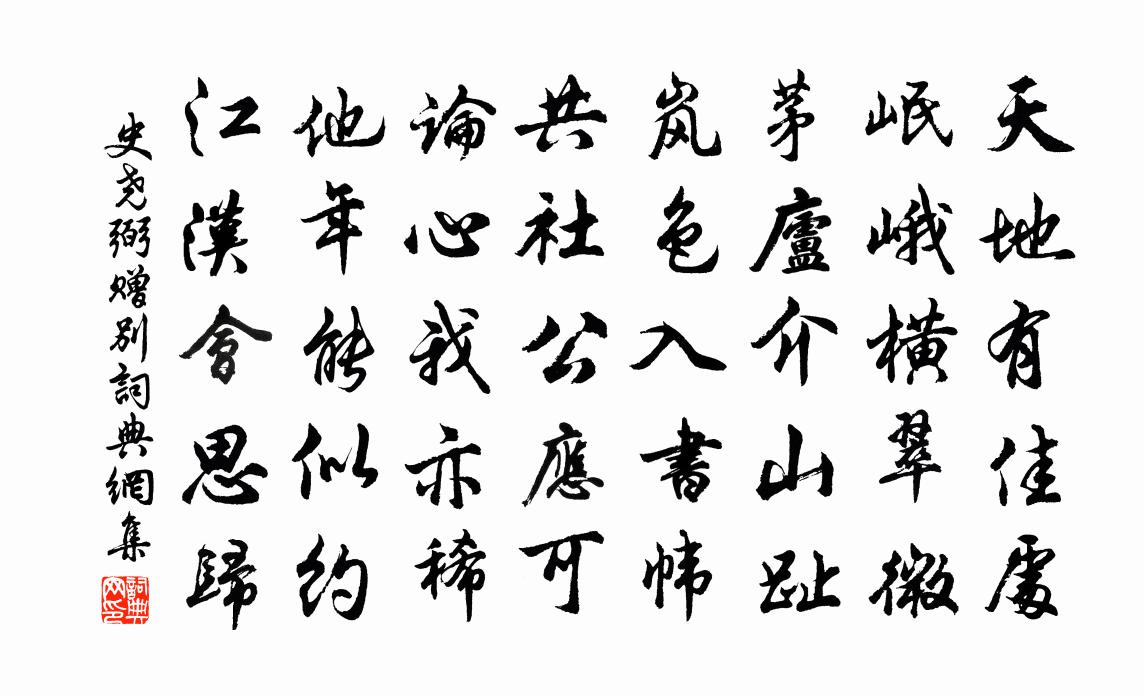 天地有佳處
岷峨橫翠微
茅廬介山趾
岚色入書帏
共社公應可
論心我亦稀
他年能似約
江漢會思歸
史尧弼赠别詞典網集
詞典網印